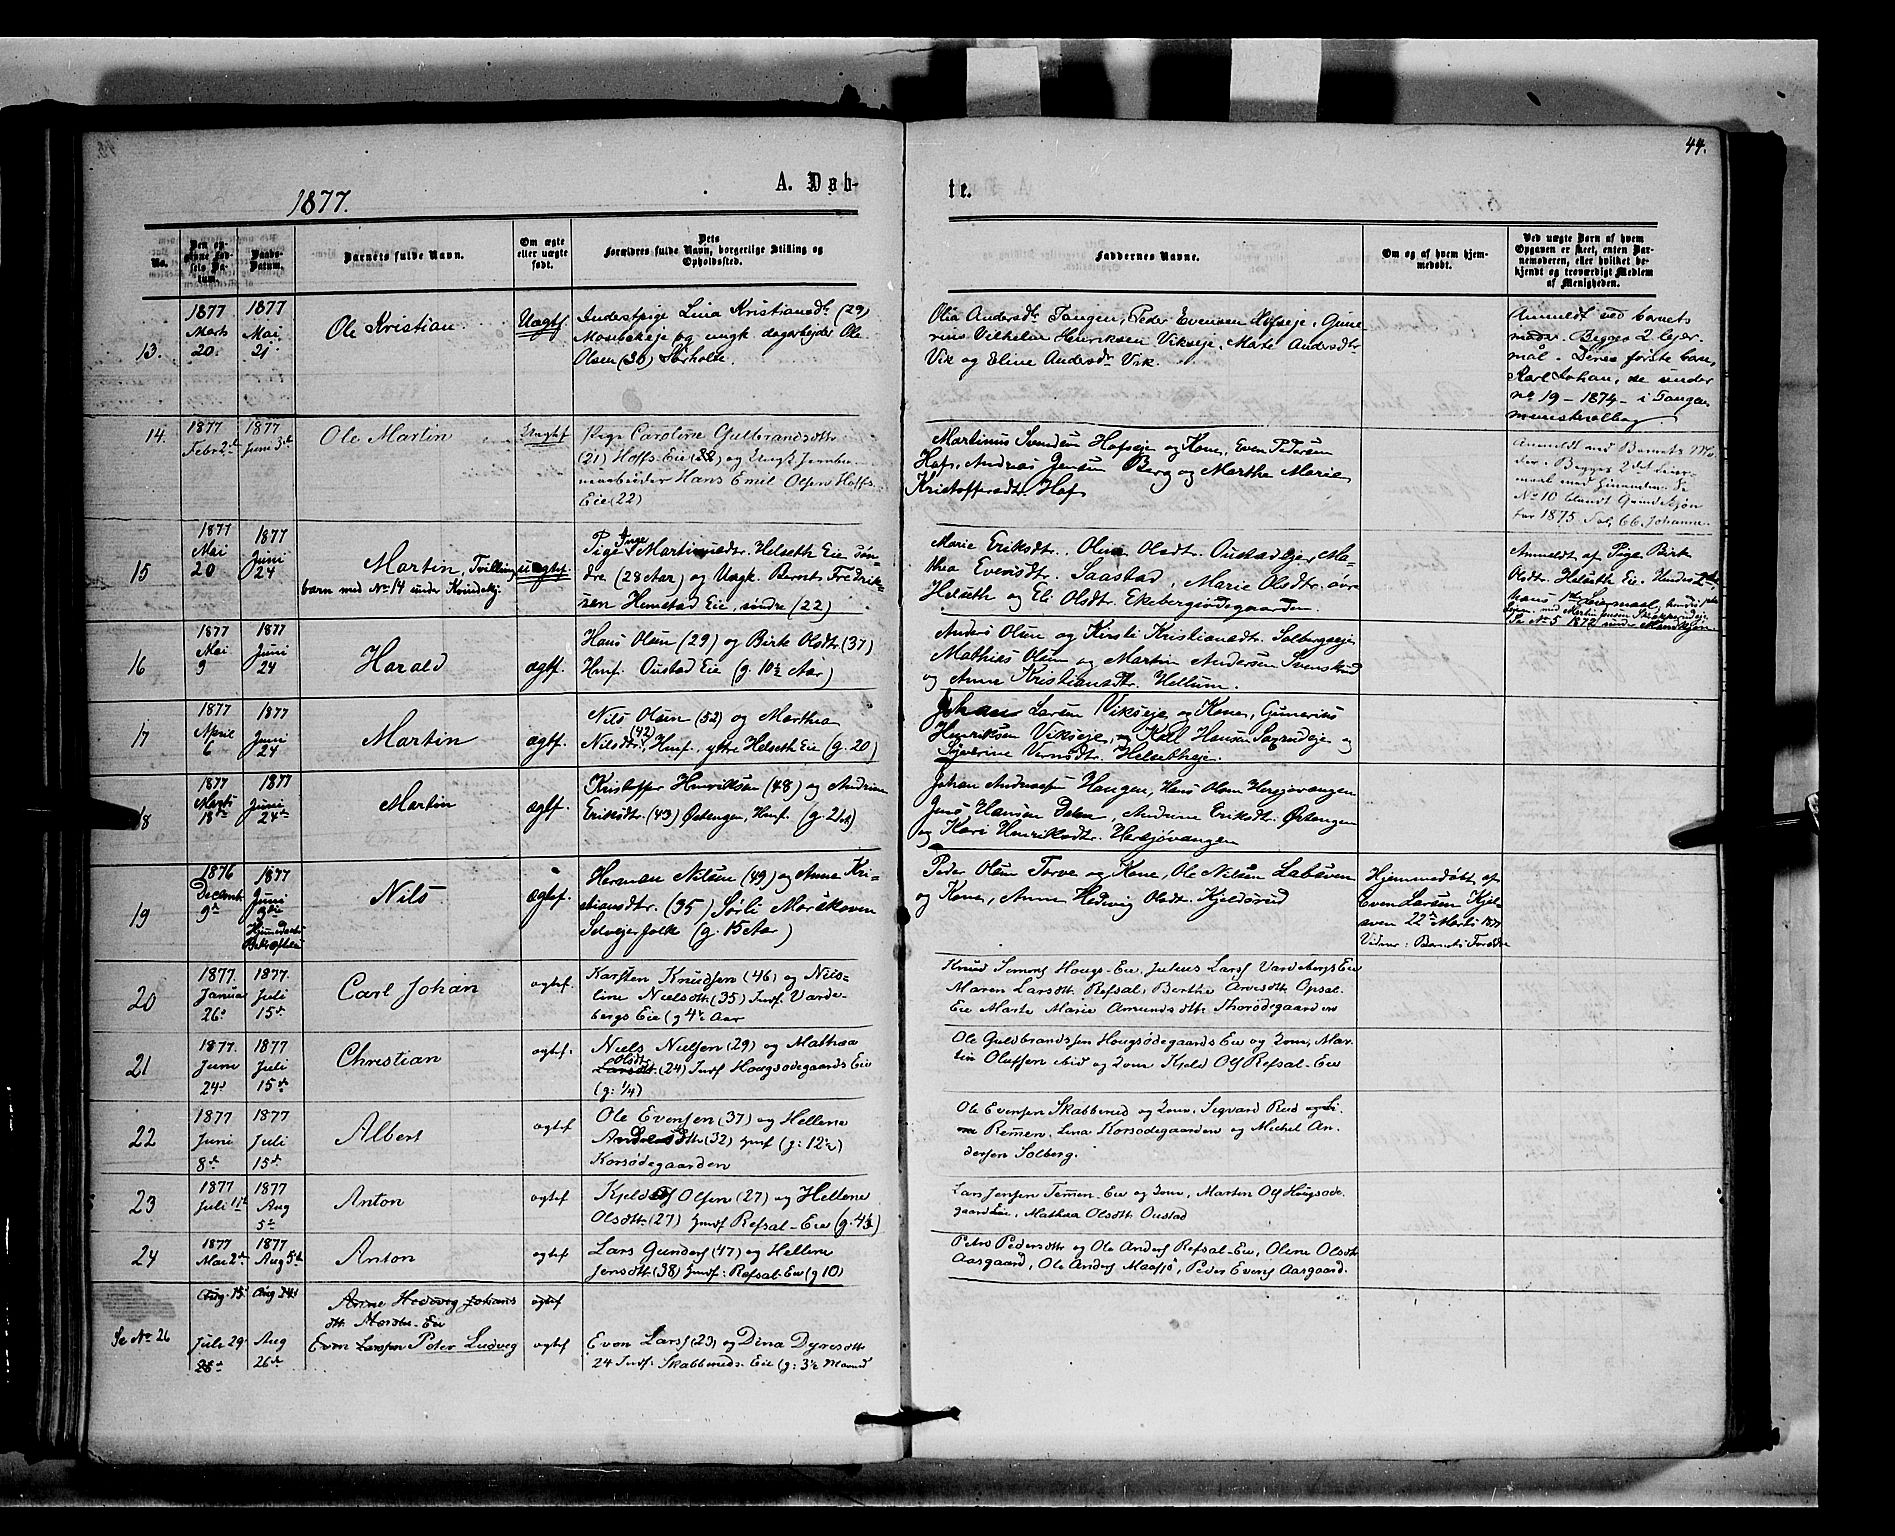 44.
1877.
A. Døb-
te.
No.
Den op-
givne Fød-
sels Da-
tum.
Daabs-
Datum.
Barnets fulde Navn.
Om ægte
eller uægte
født.
Dets
Forældres fulde Navn, borgerlige Stilling og
Opholdssted.
Faddernes Navne.
Om og af hvem hjem-
medøbt.
Ved uægte Børn af hvem
Opgaven er skeet, enten Bar-
nemoderen, eller hvilket be-
kjendt og troværdigt Medlem
af Menigheden.
13.
1877
Marts
20.
1877
Mai
21
Ole Kristian
Uægtf
Inderstpige Lina Kristiansdtr (29)
Mosbekeje og ungk. dagarbejder Ole
Olsen (36) Sørholte.
Olia Andersdtr Tangen, Peder Evensen Hofseje, Gune-
rius Vilhelm Henriksen Vikseje, Marte Andersdtr
Vik og Eline Andersdtr Vik.
Anmeldt ved barnets
moder. Begges 2. lejer-
mål. Deres første barn,
Karl Johan, se under
no 19 - 1874 - i Tangen
ministerialbog.
14.
1877
Febr 2de
1877
Juni 3de
Ole Martin
Uægtf
Pige Caroline Gulbrandsdtr
(21) Hoffs-Eie (22) og Ungk. Jernba-
nearbeider Hans Emil Olsen Hoffs
Eie (22)
Martinus Svendsen Hofseje og Kone, Even Pedersen
Hof, Andreas Jensen Berg og Marthe Marie
Kristoffersdtr. Hof
Anmeldt ved Barnets Mo-
der. Begges 2det Leier-
maal med hinanden. Se
No 10 blandt Qvindekjøn
for 1875. Fol. 66. Johanne.
15
1877
Mai
20
1877
Juni
24
Martin, Tvilling
barn med No 14 under Kvindekj.
uægtef.
Pige Inge Martinusdtr. Helseth Eie søn-
dre (28 Aar) og Ungk. Bernt Fredrik-
sen Hemstad Eie, søndre (22)
Marie Eriksdtr. Oline Olsdtr. Oustadejer, Ma-
thea Evensdtr. Saastad, Marie Olsdtr. øvre
Helseth og Eli Olsdtr. Ekebergsødegaarden.
Anmeldt af Pige Birte
Olsdtr. Helseth Eie. Hendes 2det,
hans 1ste Leiermaal, hendes 1ste
Se No 5 1872 under Mandkjøn
16
1877
Mai
9
1877
Juni
24
Harald
ægtf.
Hans Olsen (29) og Birte Olsdtr. (37)
Hmf. Oustad Eie (g. 10½ Aar)
Anders Olsen og Kirsti Kristiansdtr. Solbergseje
Mathias Olsen og Martin Andersen Svenskrud
og Anne Kristiansdtr. Hellum.
17
1877
April
6
1877
Juni
24
Martin
ægtf.
Nils Olsen (52) og Marthea
Nilsdtr. (42) Hmf. ytre Helseth Eie (g. 20)
Johan Larsen Vikseje og Kone, Gunerius
Henriksen Vikseje, og Karl Hansen Sagrudeje og
Syverine Berntsdtr. Helsetheje.
18
1877
Marts
18de
1877
Juni
24de
Martin
ægtf.
Kristoffer Henriksen (48) og Andrine
Eriksdtr. (43) Østengen, Hmf. (g. 21)
Johan Andreassen Haugen, Hans Olsen Hersjøvangen
Jens Hansen Dalen, Andrine Eriksdtr. Østengen
og Kari Henriksdtr. Hersjøvangen
19
1876
Decemb.
9de
1877
Juni
Hjemmedøbt
Bekræftelse
Nils
ægtef.
Herman Nilsen (49) og Anne Kri-
stiansdtr. (35) Sørli Morskoven
Selvejerfolk (g. 15 Aar)
Peder Olsen Torve og Kone, Ole Nilsen Labuven
og Kone, Anne Hedvig Olsdtr. Kjeldsrud
Hjemmedøbt af
Even Larsen Kjel-
aven 22de Marts 1877
Vidner: Barnets Forældre
20
1877.
Januar
26de
1877.
Juli
15de
Carl Johan
ægtef.
Karsten Knudsen (46) og Niels-
line Nielsdtt. (35) Indf. Varde-
bergs Eie (g 4½ Aar
Knud Simons Hougs-Eie, Julius Larsf Vardebergs Eie
Maren Larsdtt. Refsal, Berthe Arvesdtt. Opsal
Eie Marte Marie Amundsdtt. Thorødegaarden
21
1877.
Juni
24de
1877
Juli
15de
Christian
ægtef.
Niels Nielsen (29) og Mathea
Olsdtr.
Larsdtt. (24) Indf Hougsødegaards Eie
(g: ¼)
Ole Guldbrandsen Hougsødegaards Eie og Kone, Mar-
tin Olufsen ibid og Kone Kjeld Olf Refsal-Eie
22
1877
Juni
8de
1877
Juli
15de
Albert
ægtef
Ole Evensen (37) og Hellene
Andersdtt. (32) Hmf (g: 12½)
Korsødegaarden
Ole Evensen Skabberud og Kone, Sigvard Rud og Li-
ne Remen. Lina Korsødegaarden og Michel An-
dersen Solberg.
23
1877
Juli 11te
1877
Aug
5te
Anton
ægtef
Kjeld Olsen (27) og Hellene
Olsdtt. (27) Hmsf Refsal-Eie (g. 4½)
Lars Jensen Temmen-Eie og Kone, Martin Olf Hougsøde-
gaardEie, Mathea Olsdtt. Oustad
24
1877
Mai 2de
1877
Aug 5te
Anton
ægtef.
Lars Gundersf (47) og Hellene
Jensdtt (38) Hmsf: Refsal-Eie (g 10)
Petro Pedersdtt og Ole Andersf Refsal-Eie, Oline Olsdtt
Aasgaard, Ole Andersf Maasjø, Peder Evensf Aasgaard.
Aug. 15
Aug 24
Anne Hedevig Johans
dtt. Morsk-Eie
ægtef
Se No 26
Juli 29
25de
Aug
26de
Even Larssen Peter Ludvig
ægtef
Even Larsf (23) og Dina Dyresdtt.
24 Indf. Skabberuds-Eie (g: 3½ Maaned